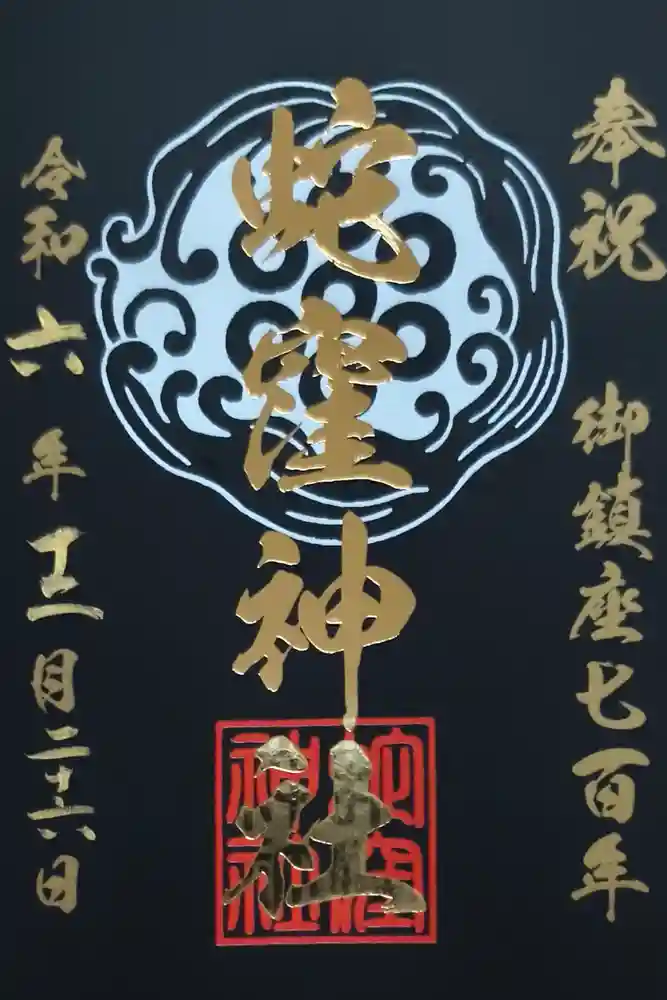 奉祝 御鎮座七百年
蛇窪神社
令和六年十二月二十六日
蛇窪
神社